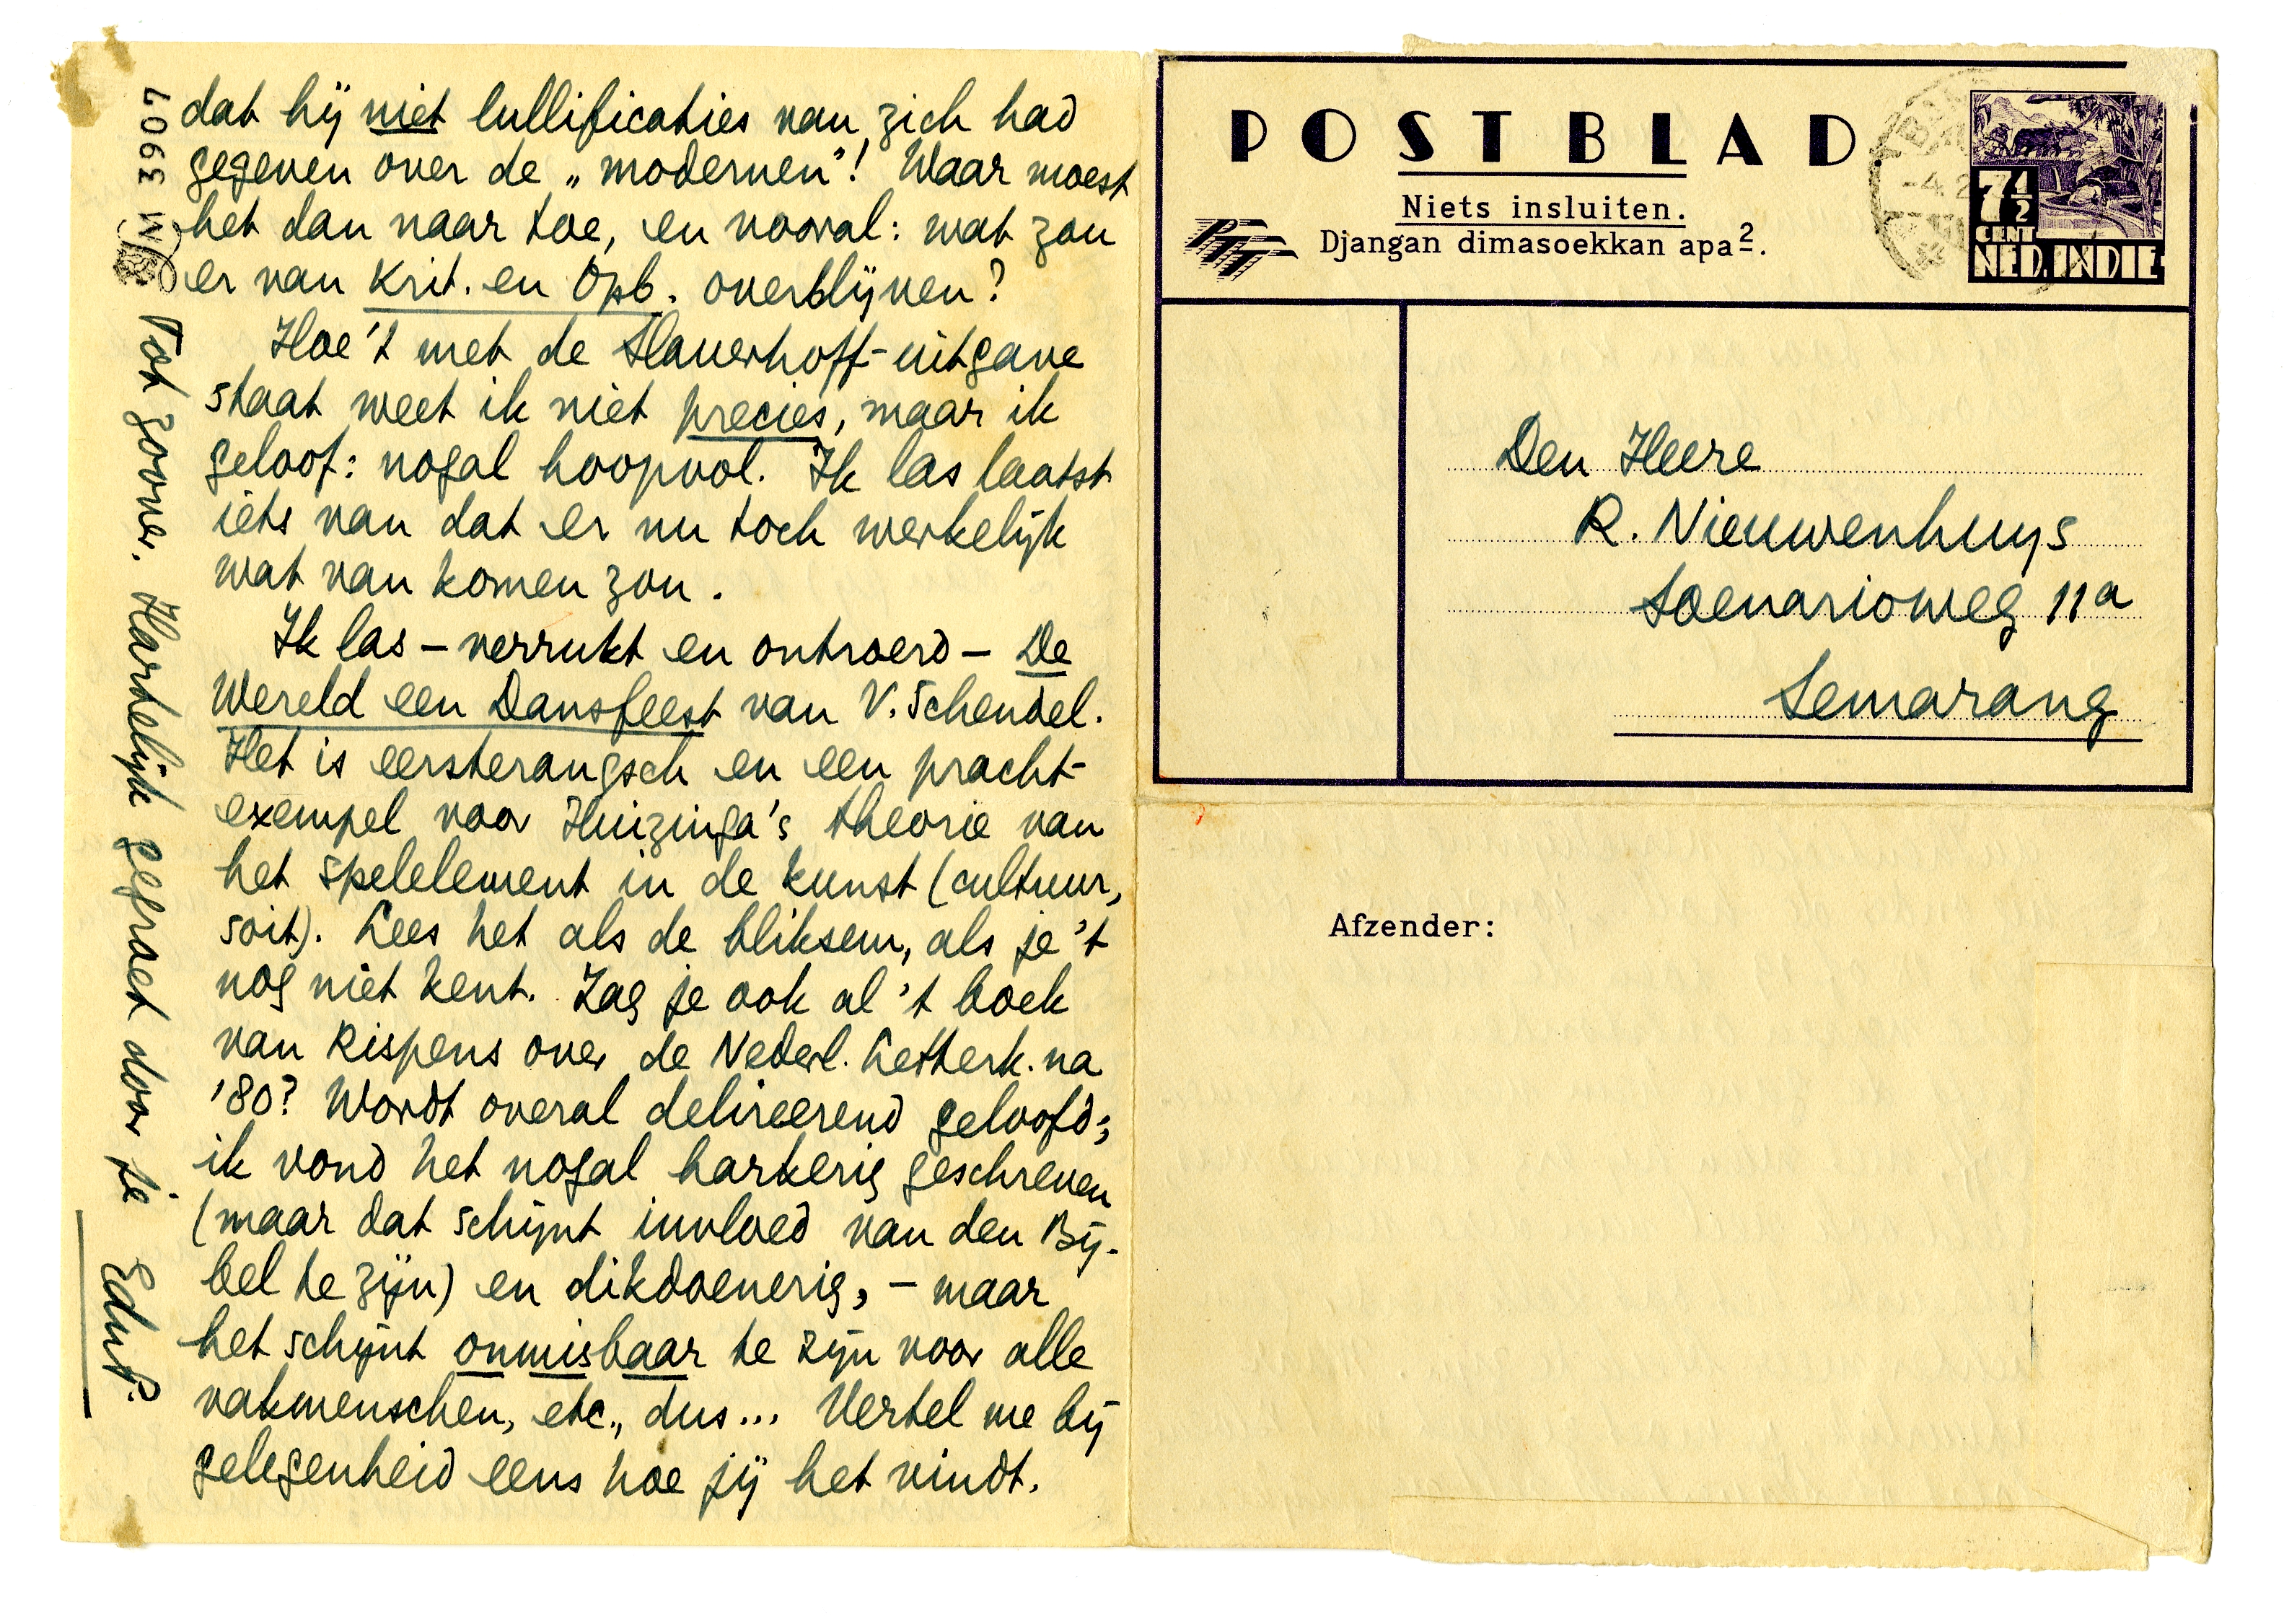 dat hij niet lullificaties van zich had
gegeven over de „modernen”! Waar moest
het dan naar toe, en vooral: wat zou
er van Krit. en Opb. overblijven?
Hoe't met de Slauerhoff-uitgave
staat weet ik niet precies, maar ik
geloof: nogal hoopvol. Ik las laatst
iets van dat er nu toch werkelijk
wat van komen zou.
Ik las – verrukt en ontroerd – De
Wereld een Dansfeest van V. Schendel.
Het is eersterangsch en een pracht-
exempel voor Huizinga's theorie van
het spelelement in de kunst (cultuur,
soit). Lees het als de bliksem, als je 't
nog niet kent. Zag je ook al 't boek
van Rispens over de Nederl. Letterk. na
'80? Wordt overal delireerend geloofd;
ik vond het nogal harkerig geschreven
(maar dat schijnt invloed van den Bij-
bel te zijn) en dikdoenerig, – maar
het schijnt onmisbaar te zijn voor alle
vakmenschen, etc., dus... Vertel me bij
gelegenheid eens hoe jij het vindt.
Tot zoover. Hartelijk gegroet door je
EduP.
LM
N 3967
POSTBLAD.
Niets insluiten.
Djangan dimasoekkan apa2.
PTT
7 1/2
CENT
NED. INDIE
Den Heere
R. Nieuwenhuys
Soenarioweg 11a
Semarang
Afzender: